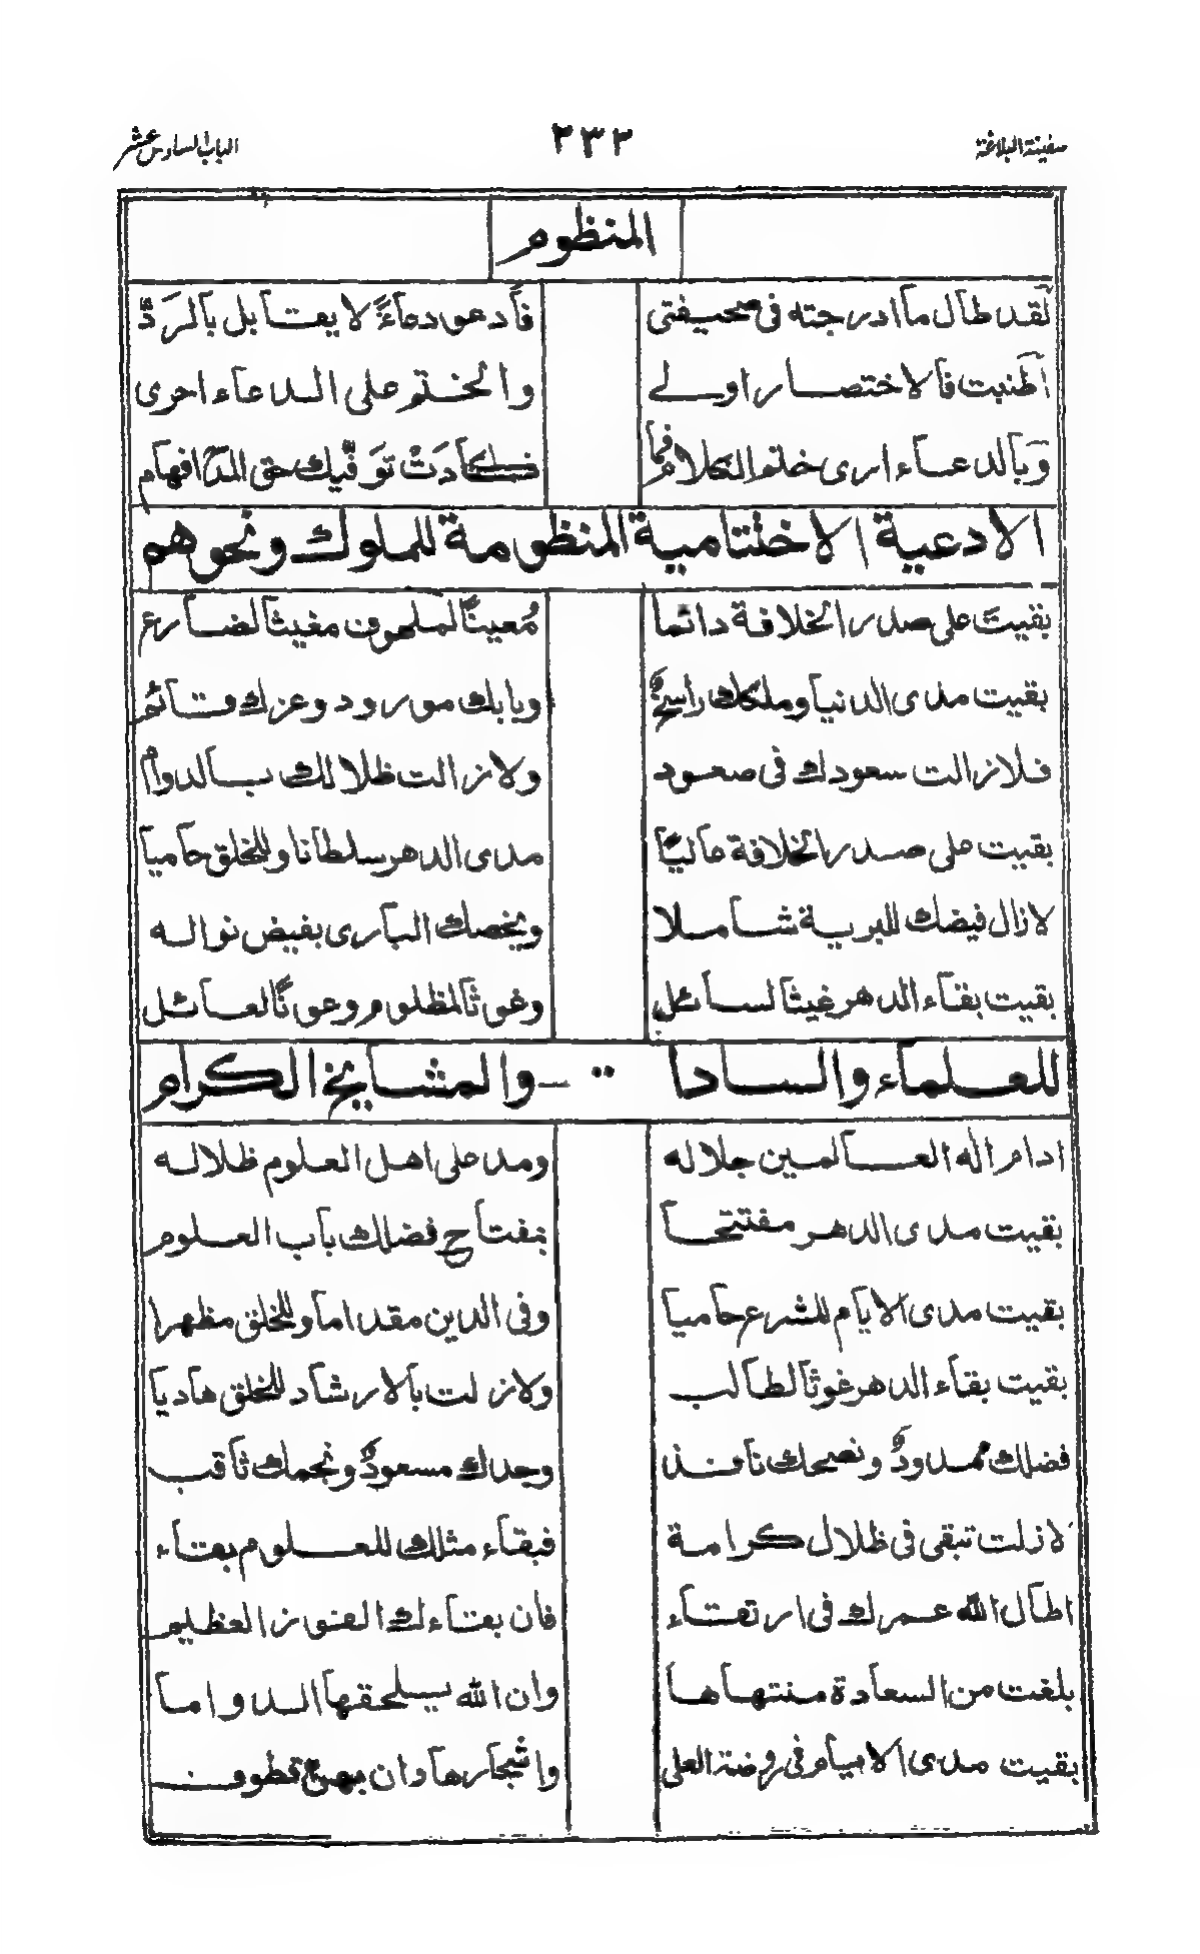 سفينة البلاغة ٢٣٢ الباب السادس عشر
المنظوم
لقد طال ما ادرجته فى صحيفتى فأدعو دعاءً لا يقابل بالرَدّ
اطنبت فالاختصار اولى والختم على الدعاء احرى
وبالدعاء ارى ختم الكلام فما كادَتْ تَوَفّيك حق المدا فهام
الادعية الاختتامية المنظومة للملوك ونحوهم
بقيت على صدر الخلافة دائما مُعيناً لملهوف مغيثا لضارع
بقيت مدى الدنيا وملكك راسخٌ وبابك مورود وعزك قائم
فلازالت سعودك فى صعود ولازالت ظلالك بالدوام
بقيت على صدر الخلافة عاليًا مدى الدهر سلطانا وللخلق حاميا
لازال فيضك للبرية شاملا ويخصك البارى بفيض نواله
بقيت بقاء الدهر غيثا لسائل وغوثا لمظلوم وعونًا لعائل
للعلماء والسادات والمشايخ الكرام
ادام اله العالمين جلاله ومد على اهل العلوم ظلاله
بقيت مدى الدهر مفتتحا بمفتاح فضلك باب العلوم
بقيت مدى الايام للشرع حاميا وفى الدين مقداما وللخلق مظهرا
بقيت بقاء الدهر غوثا لطالب ولازلت بالارشاد للخلق هاديا
فضلك ممدودٌ ونصحك نافذ وجدك مسعودٌ ونجمك ثاقب
لازلت تبقى فى ظلال كرامة فبقاء مثلك للعلوم بقاء
اطال الله عمرك فى ارتقاء فان بقاءك الفوز العظيم
بلغت من السعادة منتهاها وان الله يلحقها الدواما
بقيت مدى الايام فى روضة العلى واشجارها دان قطوف